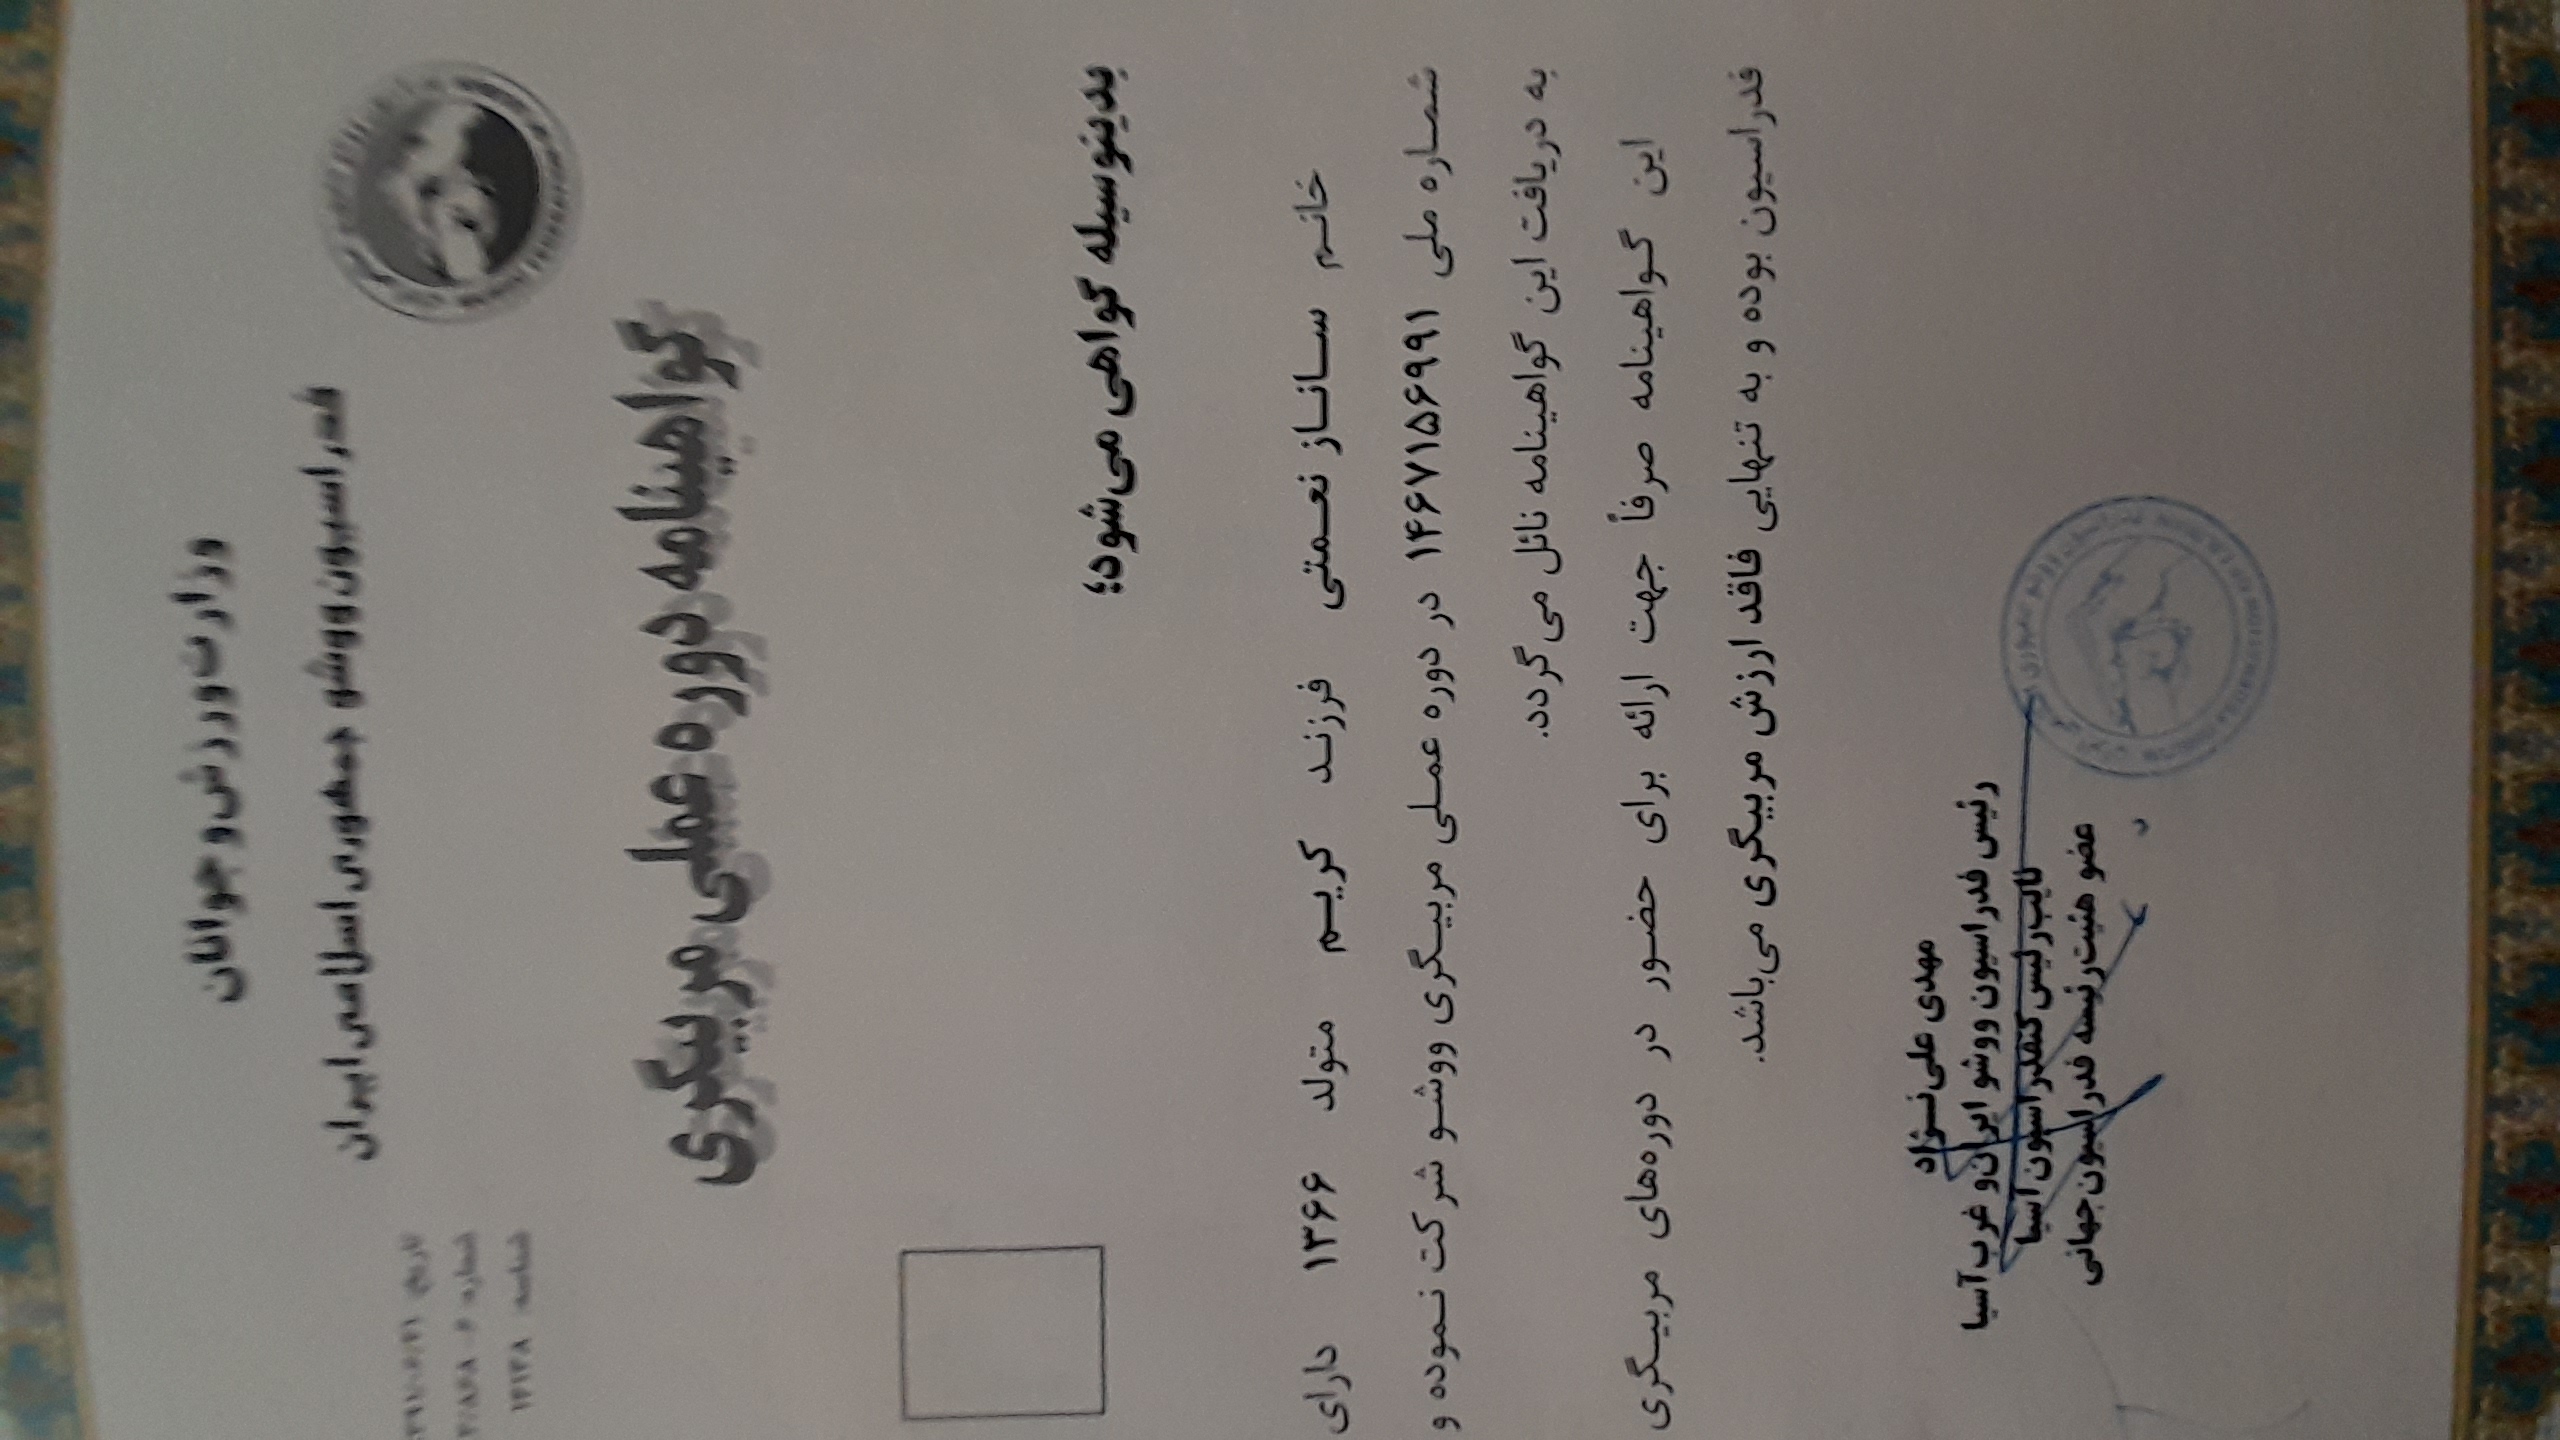 وزارت ورزش و جوانان
فدراسیون ووشو جمهوری اسلامی ایران
تاریخ
شماره
شناسه ۱۴۱۳۸
گواهینامه دوره عملی مربیگری
بدینوسیله گواهی می‌شود؛
خانم ساناز نعمتی فرزند کریم متولد ۱۳۶۶ دارای
شماره ملی ۱۴۶۷۱۵۶۹۹۱ در دوره عملی مربیگری ووشو شرکت نموده و
به دریافت این گواهینامه نائل می‌گردد.
این گواهینامه صرفاً جهت ارائه برای حضور در دوره‌های مربیگری
فدراسیون بوده و به تنهایی فاقد ارزش مربیگری می‌باشد.
مهدی علی‌نژاد
رئیس فدراسیون ووشو ایران و غرب آسیا
نایب رئیس کنفدراسیون آسیا
عضو هیئت رئیسه فدراسیون جهانی